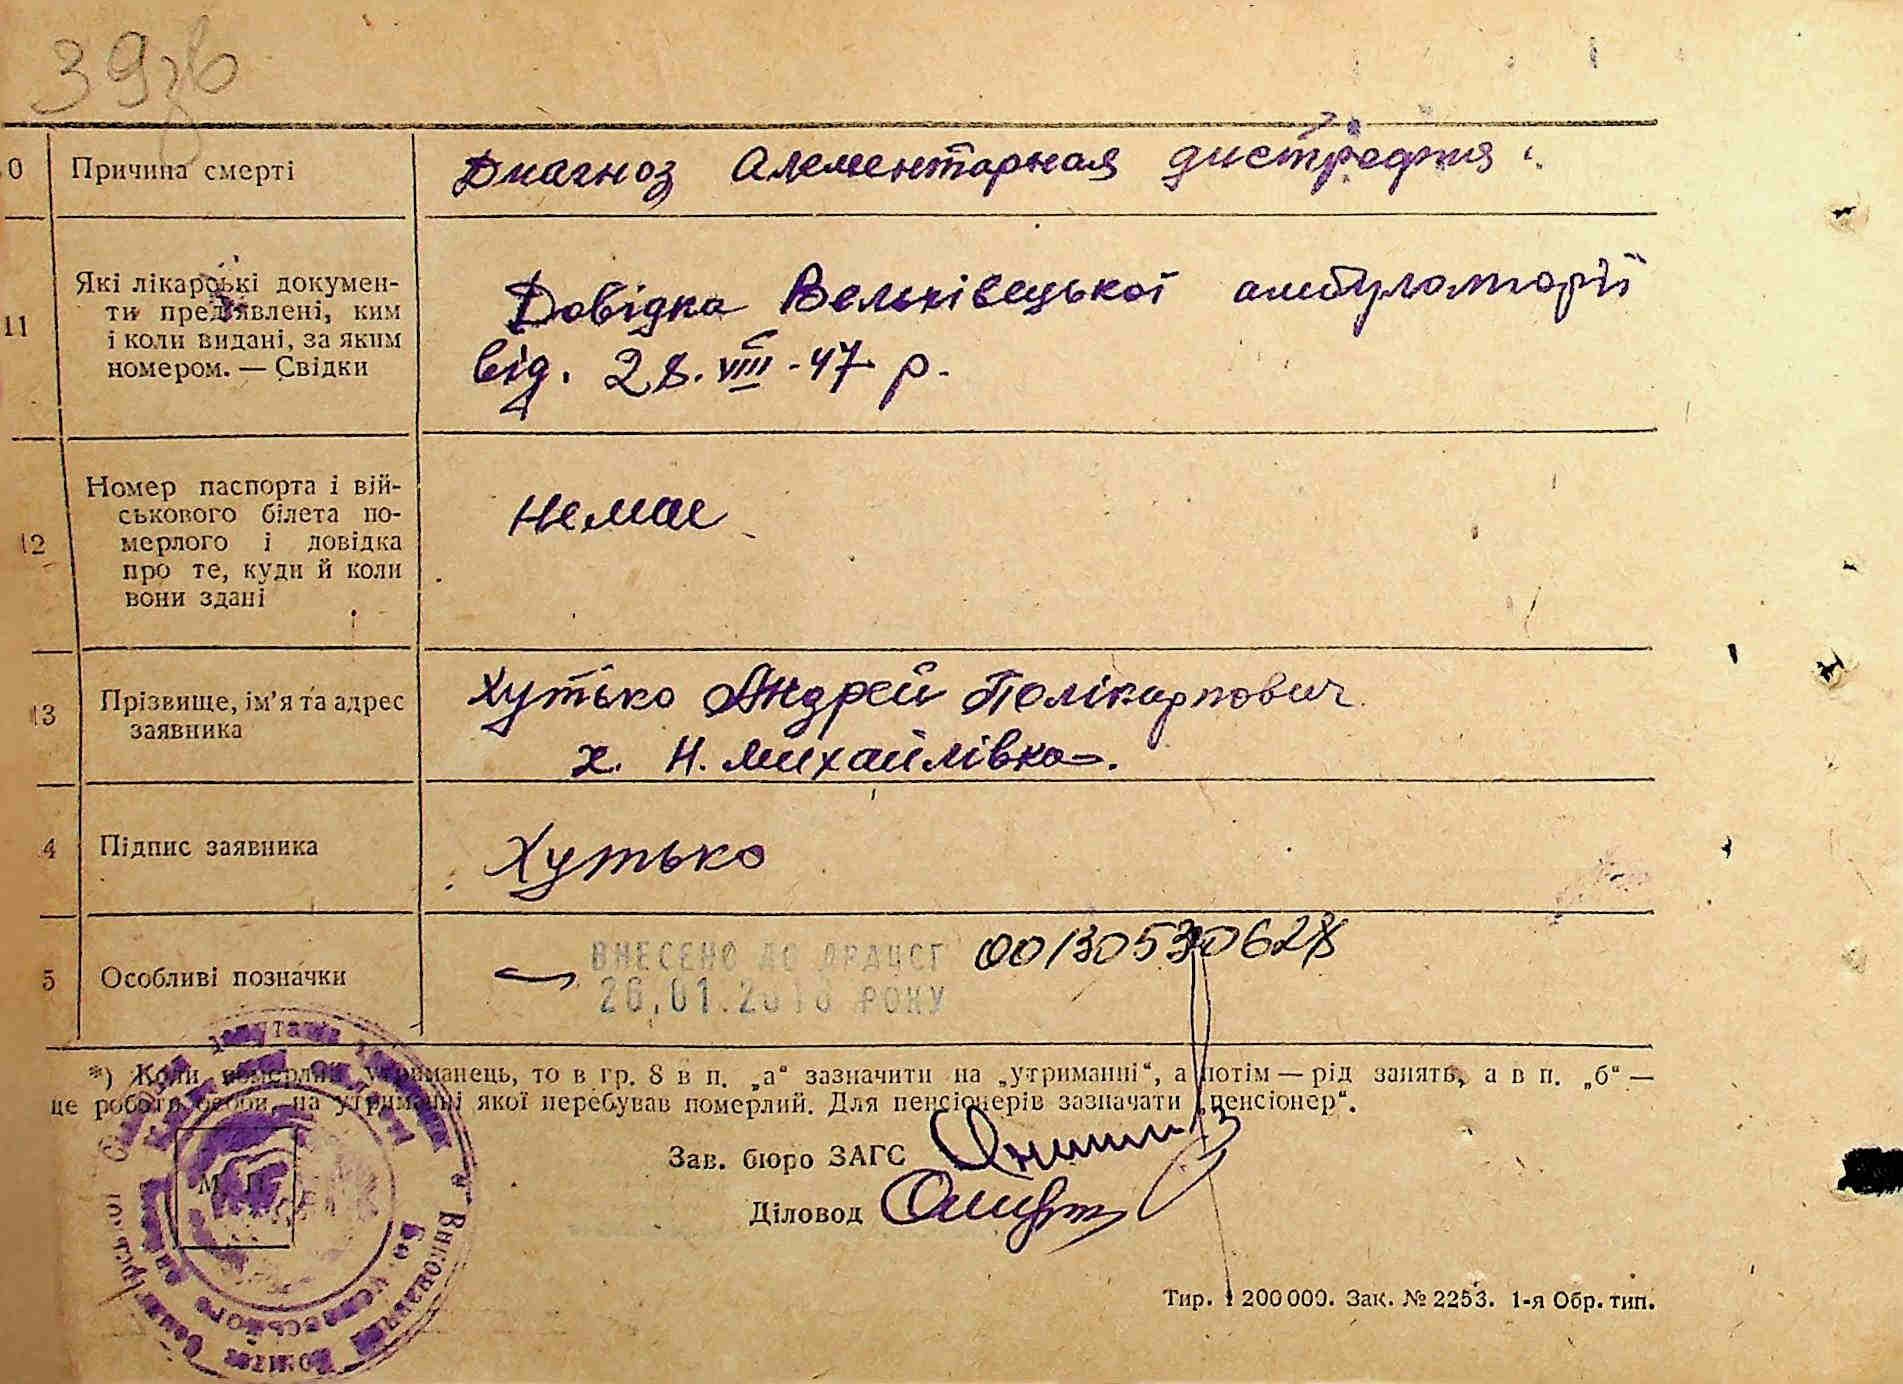 39зв
0 Причина смерті Диагноз Алементарная дистрофия.
11 Які лікарські докумен-
ти пред'явлені, ким
і коли видані, за яким
номером. — Свідки
Довідка Вельківецької амбулаторії
від. 28. VIII - 47 р.
12 Номер паспорта і вій-
ськового білета по-
мерлого і довідка
про те, куди й коли
вони здані
Немає
13 Прізвище, ім'я та адрес
заявника
Хутько Андрей Полікарпович
х. Н. Михайлівка.
4 Підпис заявника Хутько
5 Особливі позначки
ВНЕСЕНО ДО ДРАЦСГ
26.01.2018 РОКУ
*) Коли померлий утриманець, то в гр. 8 в п. „а“ зазначити на „утриманні“, а потім — рід занять, а в п. „б“ —
це роботи особи, на утриманні якої перебував померлий. Для пенсіонерів зазначати „пенсіонер“.
Зав. бюро ЗАГС
Діловод
М. П.
Виконавчий Комітет
Тир. 1 200 000. Зак. № 2253. 1-я Обр. тип.